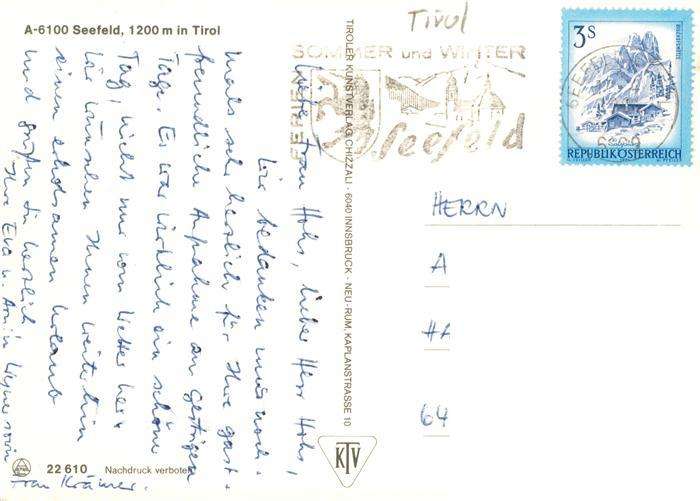 A-6100 Seefeld, 1200 m in Tirol
Liebe Frau Hohs, lieber Herr Hohs,
Wir bedanken uns noch-
mals sehr herzlich für Ihre gast-
freundliche Aufnahme am gestrigen
Tage. Es war wirklich ein schöner
Tag, nicht nur vom Wetter her.
Wir wünschen Ihnen weiterhin
einen erholsamen Urlaub
und grüßen Sie herzlich
Ihre Eva u. Armin sowie
Frau Krämer.
22 610 Nachdruck verboten
TIROLER KUNSTVERLAG CHIZZALI · 6040 INNSBRUCK · NEU-RUM, KAPLANSTRASSE 10
KTV
Tirol
SOMMER und WINTER
FERIEN
Seefeld
3 S
REPUBLIK ÖSTERREICH
HERRN
A
HA
64